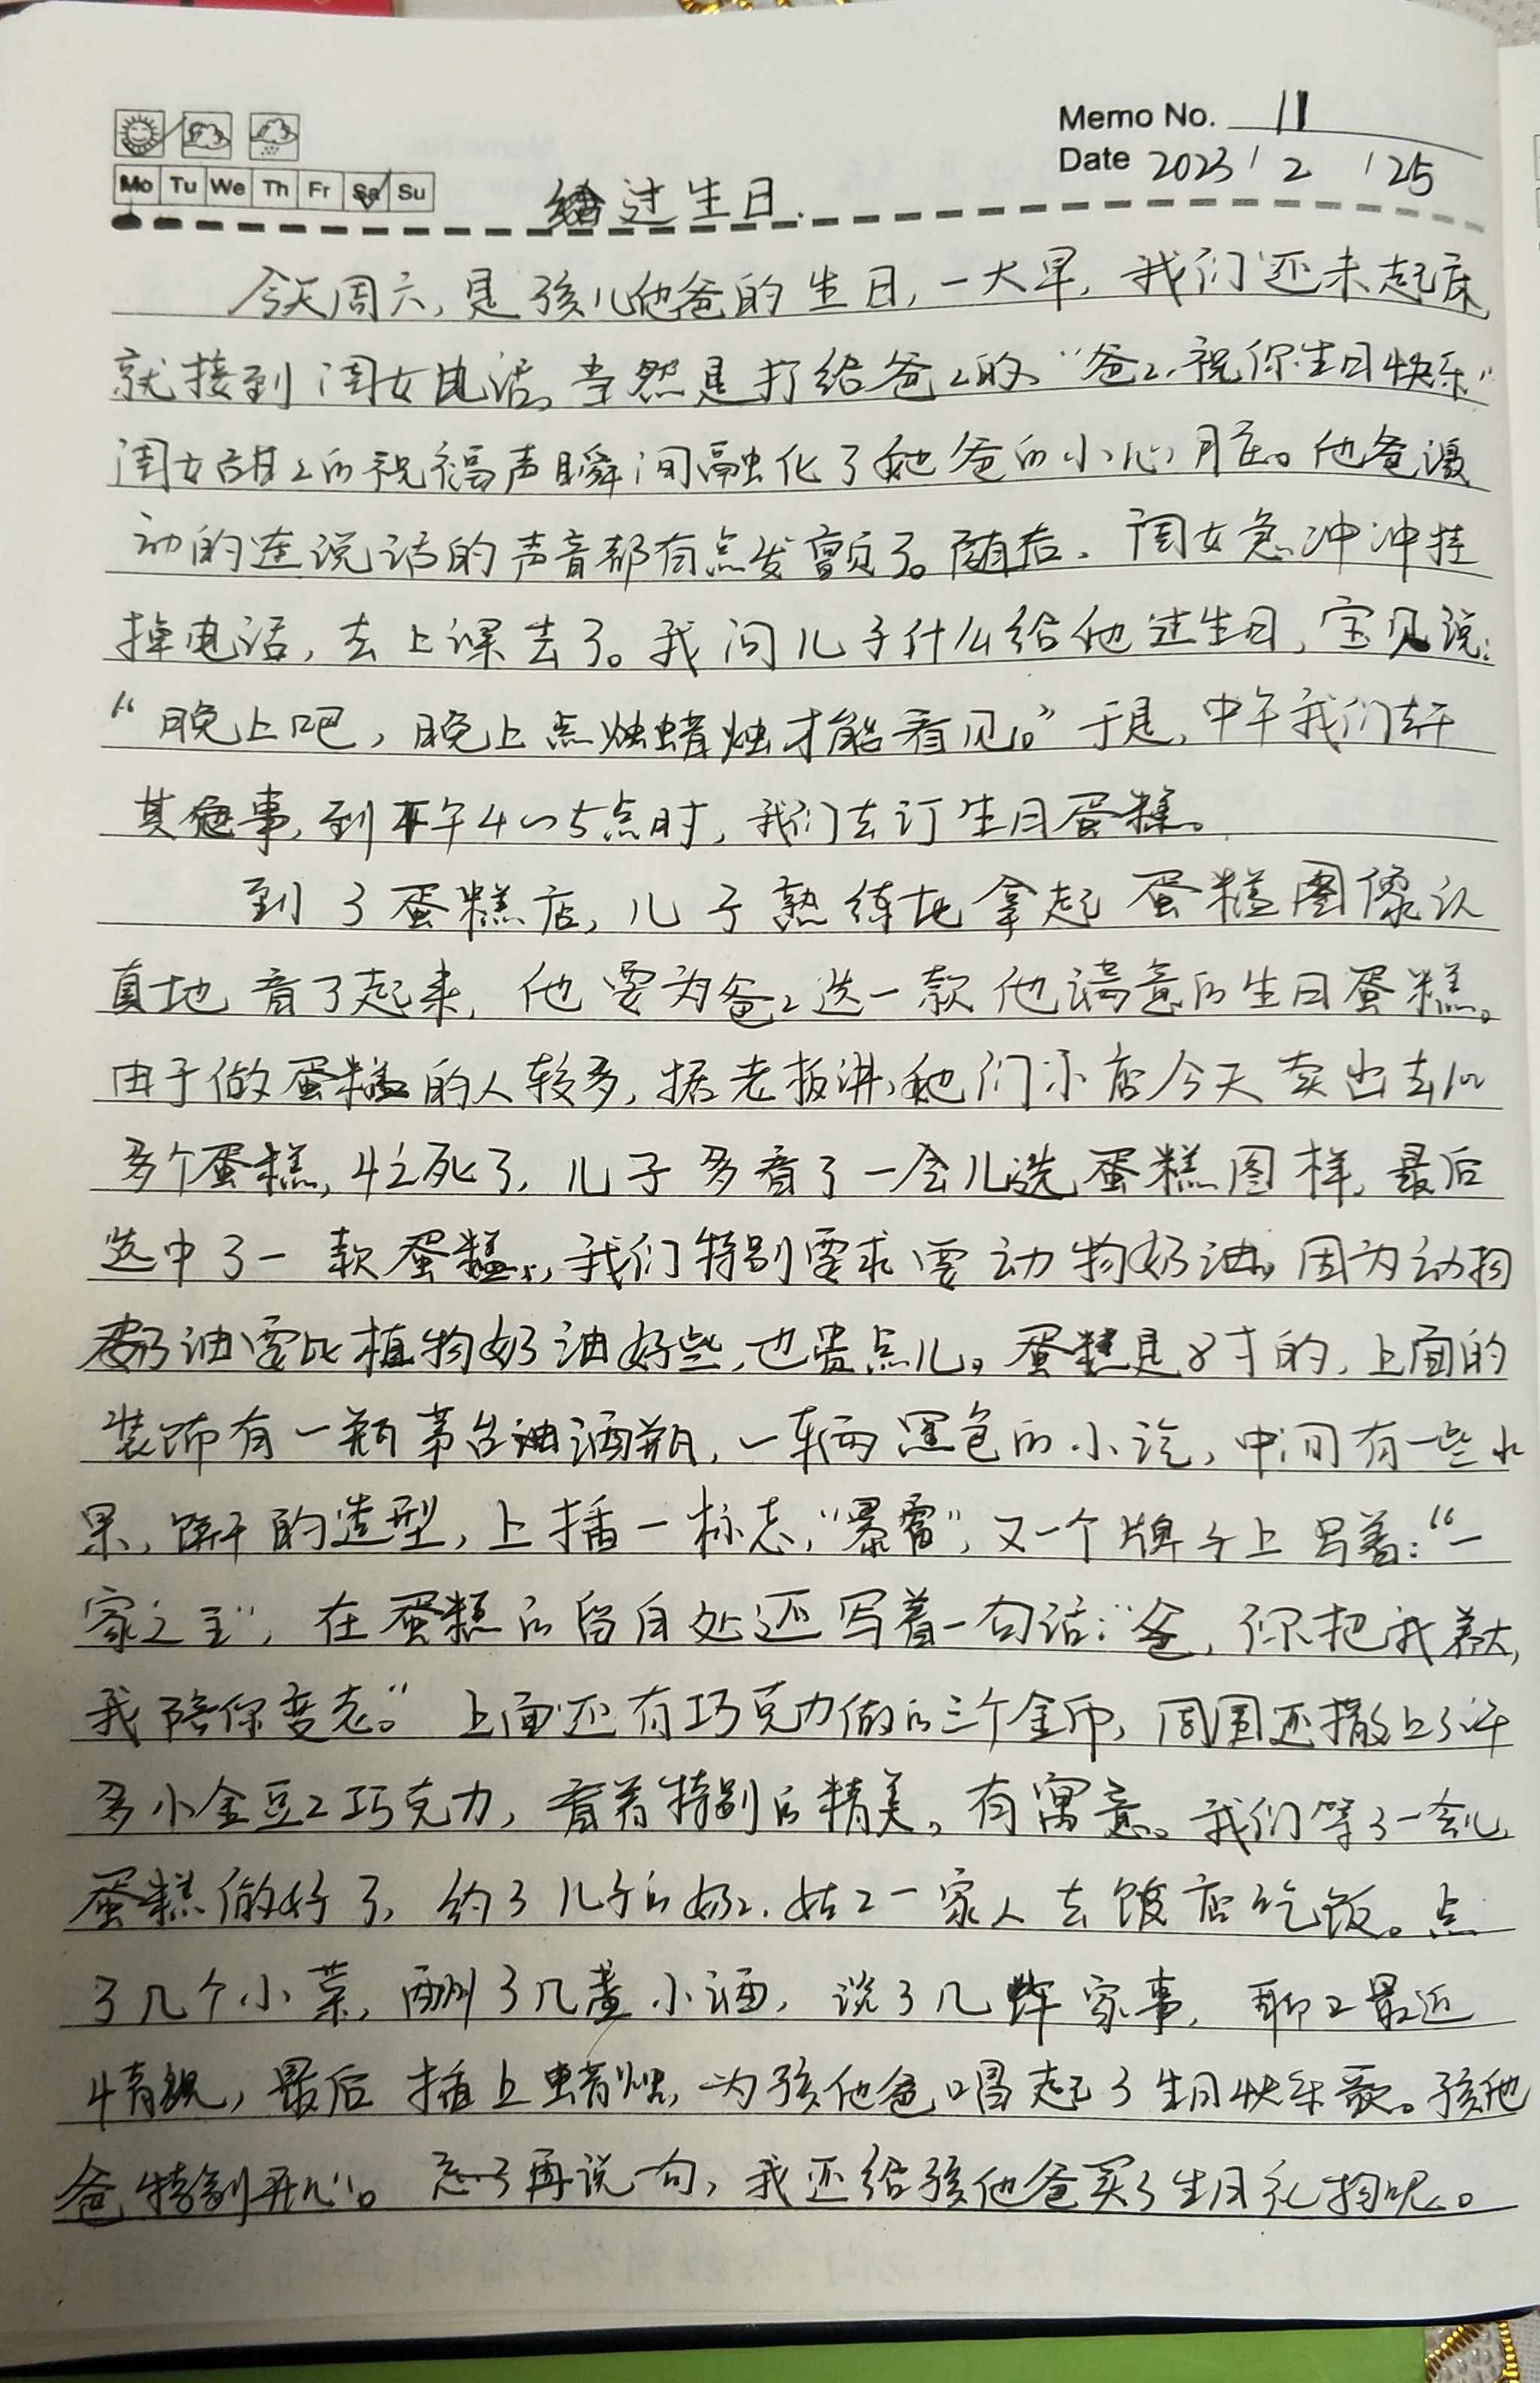 Memo No. 11
Mo Tu We Th Fr Sa Su
Date 2023 / 2 / 25
给过生日.
今天周六,是孩儿他爸的生日,一大早,我们还未起床,
就接到闺女电话,当然是打给爸〻的、“爸〻,祝你生日快乐”
闺女甜〻的祝福声瞬间融化了她爸的小心脏。他爸激
动的连说话的声音都有点发颤了。随后、闺女急冲冲挂
掉电话,去上课去了。我问儿子什么给他过生日,宝贝说:
“晚上吧,晚上点蜡烛才能看见。”于是,中午我们去干
其他事,到下午4~5点时,我们去订生日蛋糕。
到了蛋糕店,儿子熟练地拿起蛋糕图像认
真地看了起来,他要为爸〻选一款他满意的生日蛋糕。
由于做蛋糕的人较多,据老板讲,他们小店今天卖出去10
多个蛋糕,忙死了,儿子多看了一会儿选蛋糕图样,最后
选中了一款蛋糕,我们特别要求要动物奶油。因为动物
奶油要比植物奶油好些,也贵点儿。蛋糕是8寸的,上面的
装饰有一瓶茅台酒瓶,一辆黑色的小汽,中间有一些水
果,饼干的造型,上插一标志,“暴富”,又一个牌子上写着:“一
家之主”,在蛋糕的留白处还写着一句话:“爸,你把我养大,
我陪你变老。”上面还有巧克力做的三个金币,周围还撒上了许
多小金豆〻巧克力,看着特别的精美,有寓意。我们等了一会儿,
蛋糕做好了,约了儿子的奶〻、姑〻一家人去饭店吃饭。点
了几个小菜,酌了几壶小酒,说了几件家事,聊〻最近
情况,最后插上蜡烛,为孩他爸唱起了生日快乐歌。孩他
爸特别开心。忘了再说一句,我还给孩他爸买了生日礼物呢。